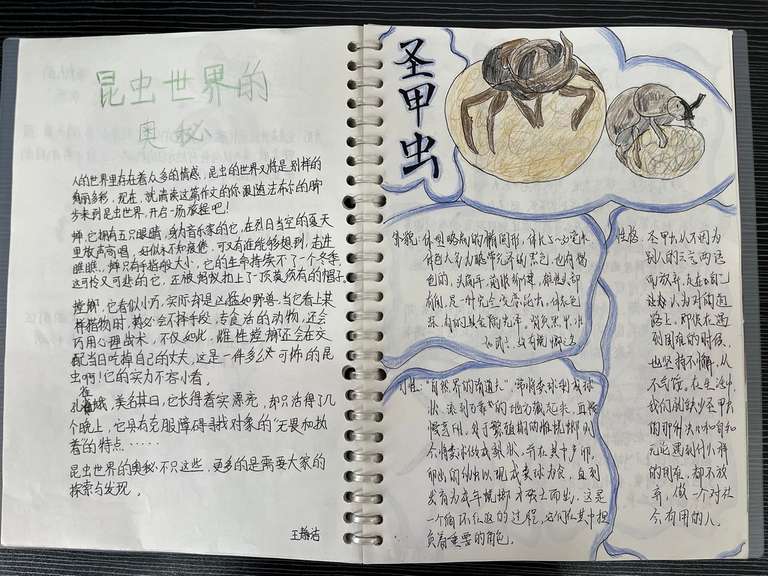 昆虫世界的
奥秘
人的世界里存在着众多的情感,昆虫的世界又将是别样的
绚丽多彩,现在,就请读这篇作文的你跟随法布尔的脚
步来到昆虫世界,开启一场旅程吧!
蝉,它拥有五只眼睛,身为音乐家的它,在烈日当空的夏天
里放声高唱,好似永不知疲惫,可又有谁能够想到,去进
瞧瞧,蝉只有手指般大小,它的生命持续不了一个冬季,
这可怜又可悲的它,还被蚂蚁扣上了一顶莫须有的帽子。
螳螂,它看似小巧,实际却是凶猛如野兽,当它看上某
样猎物时,势必会不择手段,专食活的动物,还会
巧用心理战术,不仅如此,雌性螳螂还会在交
配当日吃掉自己的丈夫,这是一件多么可怖的昆
虫啊!它的实力不容小看。
孔雀蛾,美名其曰,它长得着实漂亮,却只活得了几
个晚上,它具有克服障碍寻找对象的“无畏和执
着”的特点……
昆虫世界的奥秘不只这些,更多的是需要大家的
探索与发现。
王静洁
圣甲虫
体型略扁的椭圆形,体长
体色大多为略带光泽的黑色,也有褐
色的,头扁平,
习性:“自然界的清道夫”,常将粪球制成球
状,滚到可靠的地方藏起来,再慢
慢享用。处于繁殖期的雌蜣螂则
会将粪球做成梨状,并在其中产卵。
卵出的幼虫以现成粪球为食,直到
发育为成年蜣螂才破土而出。这是
一个循环
负着重要的角色。
性格:圣甲虫从不因为
别人的三言两语
而放弃,反在自己
认为对的道
路上,即使在遇
到困难的时候,
也坚持不懈,从
不气馁,在生活中
我们就缺少圣甲虫
无论遇到什么样
的困难,都不放
弃,做一个对社
会有用的人。